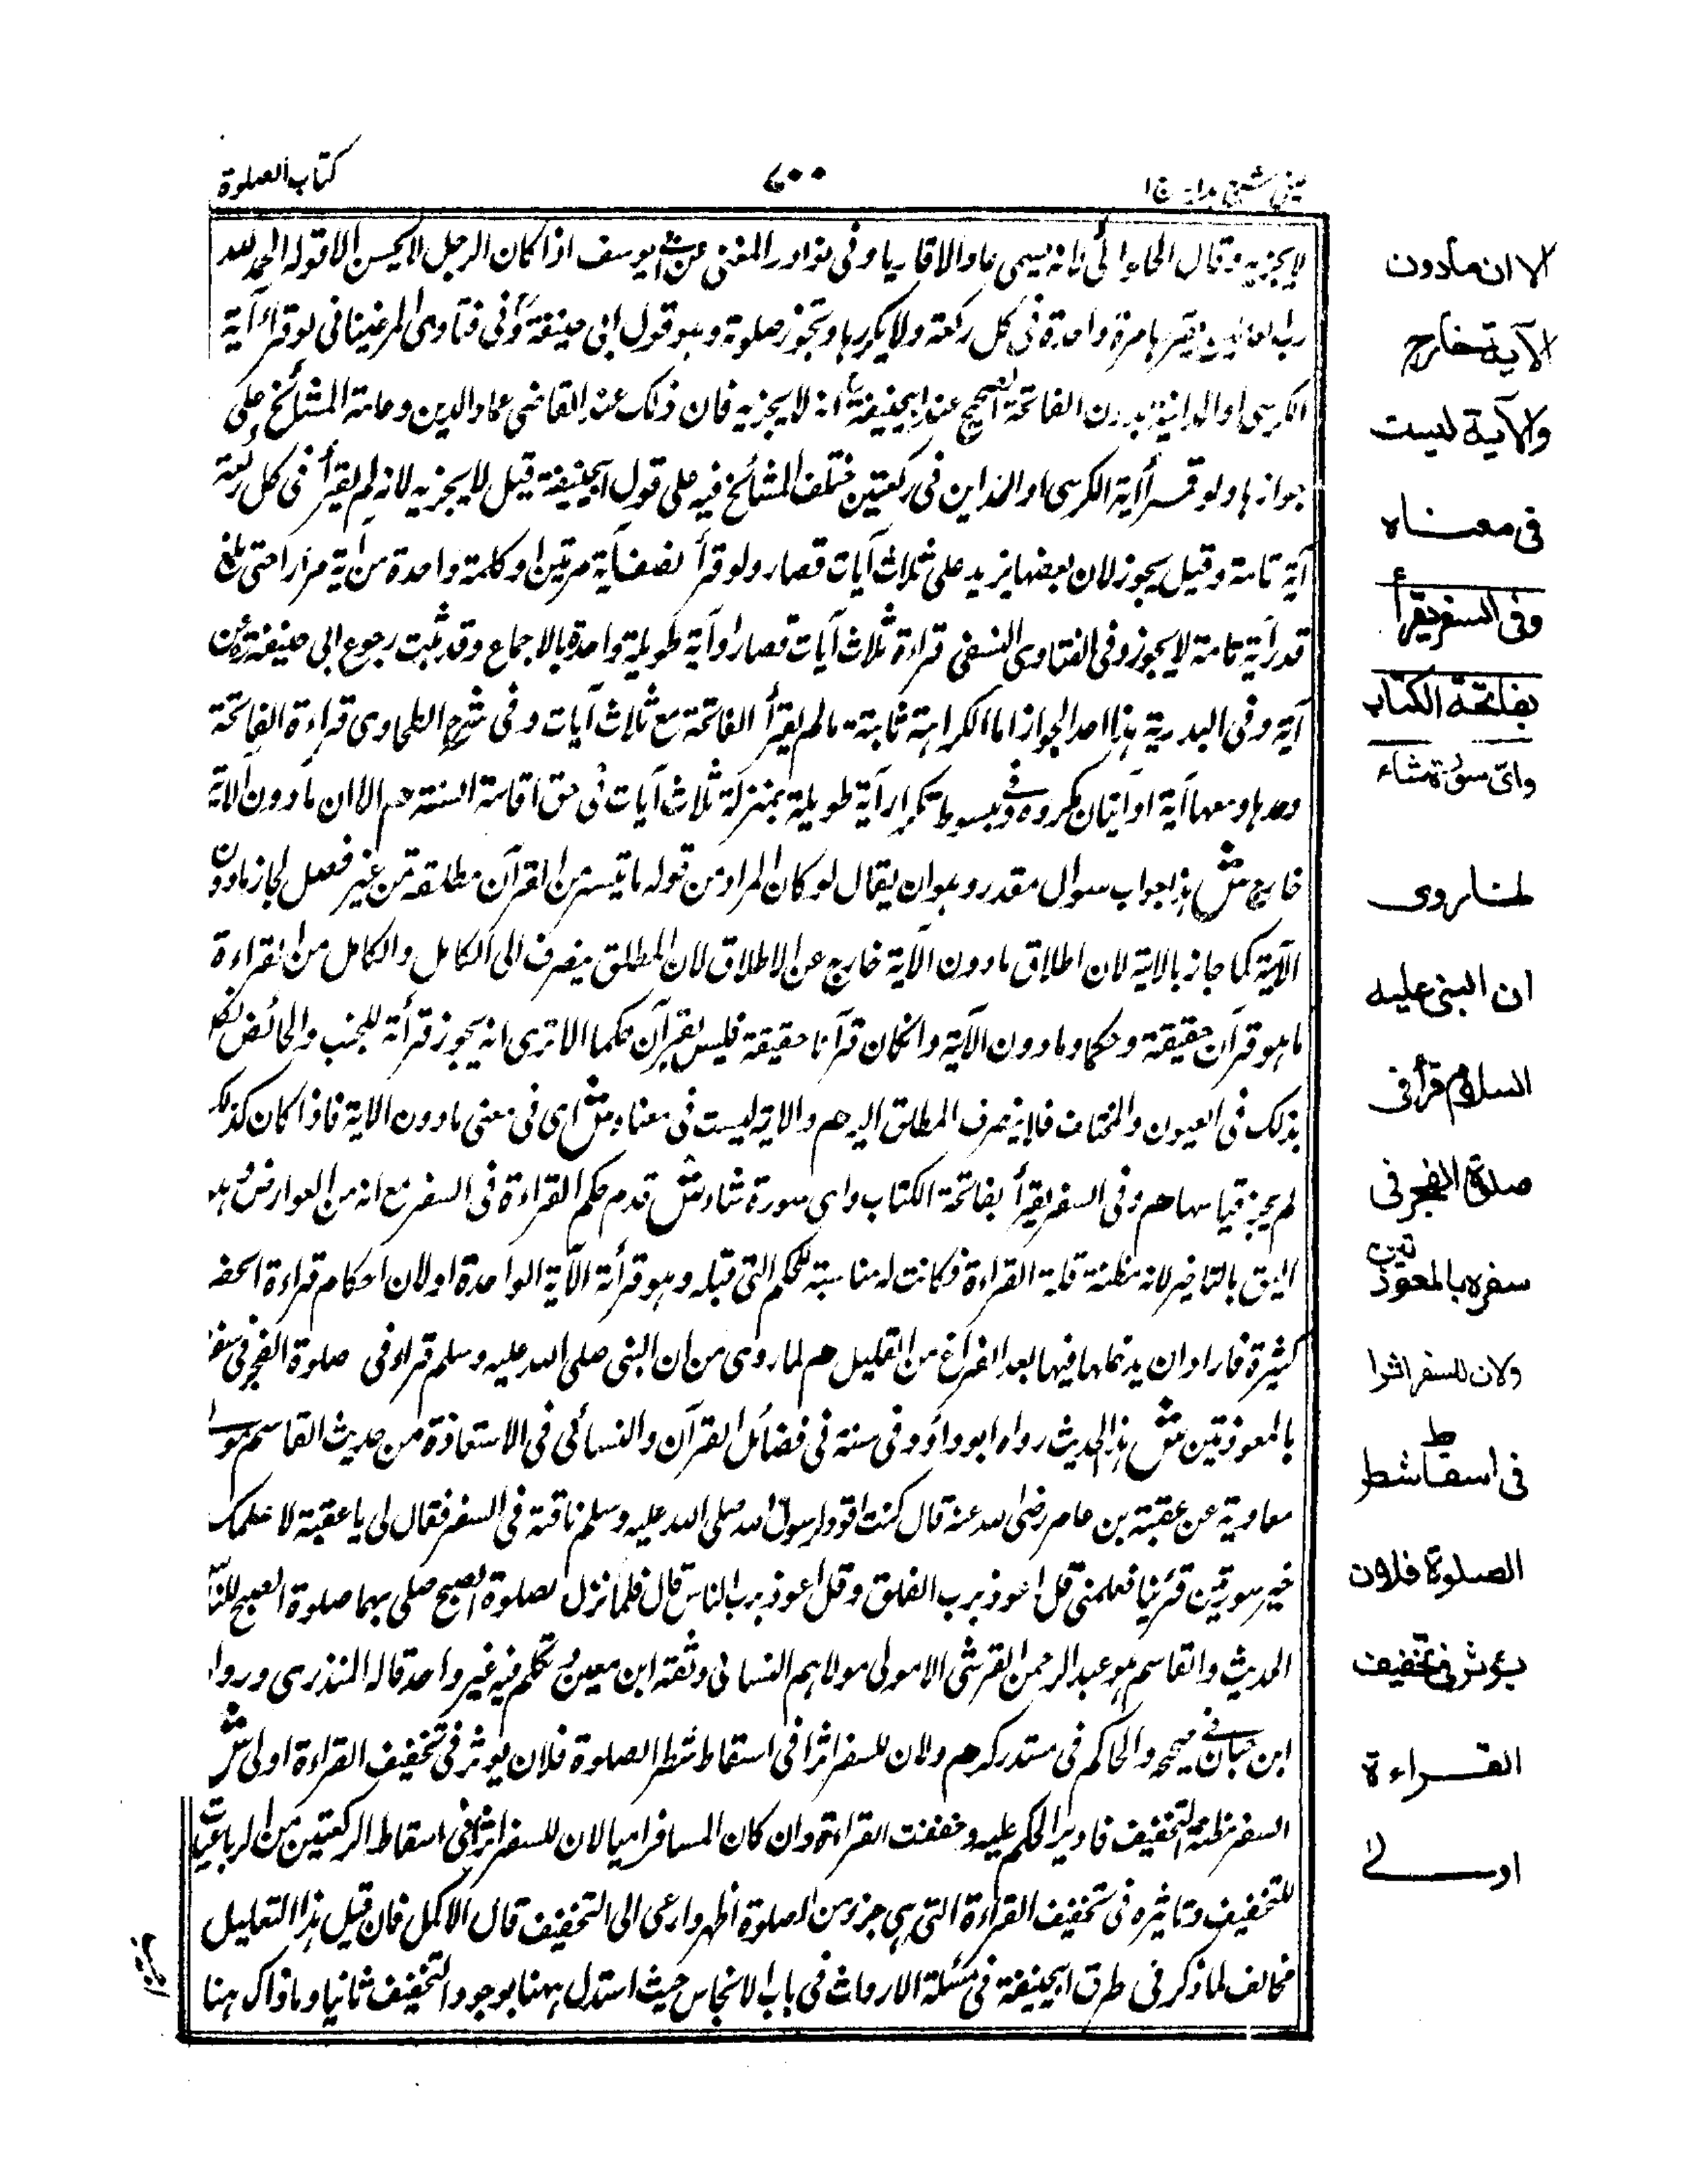 كتاب الصلوة
٧٠٠
عيني شرح هدايه ج ١
لا يجزيه وقال الحلوائى لانه يسمى عادا لا قاريا وفى نوادر المغنى عن أبى يوسف اذا كان الرجل لا يحسن الا قوله الحمد لله
رب العالمين يقرءها مرة واحدة فى كل ركعة ولا يكررها وتجوز صلوته وهو قول ابى حنيفة وفى فتاوى المرغينانى لو قرأ آية
الكرسى او المداينة بدون الفاتحة الصحيح عند ابيحنيفة انه لا يجزيه فان ذلك عند القاضى عماد الدين وعامة المشائخ على
جوازها ولو قرأ آية الكرسى او المداين فى ركعتين اختلف المشائخ فيه على قول ابيحنيفة قيل لا يجزيه لانه لم يقرأ فى كل ركعة
آية تامة وقيل يجوز لان بعضها يزيد على ثلاث آيات قصار ولو قرأ نصف آية مرتين او كلمة واحدة من آية مرارا حتى بلغ
قدر آية تامة لا يجوز وفى الفتاوى النسفى قراءة ثلاث آيات قصار او آية طويلة واحدة بالاجماع وقد ثبت رجوع ابى حنيفة عن
آية وفى البدرية هذا احد الجواز اما الكراهة ثابتة ما لم يقرأ الفاتحة مع ثلاث آيات وفى شرح الطحاوى قراءة الفاتحة
وحدها ومعها آية او آيتان مكروه وفى مبسوط تكرار آية طويلة بمنزلة ثلاث آيات فى حق اقامة السنة هم الا ان ما دون الآية
خارج ش هذا جواب سوال مقدر وهو ان يقال لو كان المراد من قوله ما تيسر من القرآن مطلقه من غير فصل لجاز مادون
الآية كما جاز بالاية لان اطلاق مادون الآية خارج عن الاطلاق لان المطلق ينصرف الى الكامل والكامل من القراءة
ما هو قرآن حقيقة وحكما وما دون الآية وان كان قرآنا حقيقة فليس بقرآن حكما الا ترى انه يجوز قرأة للجنب والحائض
بذلك فى العيون والمختلف فلا ينصرف المطلق اليه هم والاية ليست فى معناه ش اى فى معنى مادون الاية فاذا كان كذلك
لم يجز قياسها هم وفى السفر يقرأ بفاتحة الكتاب واى سورة شاء ش قدم حكم القراءة فى السفر مع انه من العوارض وهو
اليق بالتاخير لانه مظنة قلة القراءة فكانت له مناسبة للحكم التى قبله وهو قرأة الآية الواحدة او لان احكام قراءة الحضر
كثيرة فاراد ان يدخلها فيها بعد الفراغ من القليل هم لما روى من ان النبى صلى الله عليه وسلم قرأ فى صلوة الفجر فى سفر
بالمعوذتين ش هذا الحديث رواه ابوداؤد فى سننه فى فضائل القرآن والنسائى فى الاستعاذة من حديث القاسم مولى
معاوية عن عقبة بن عامر رضى الله عنه قال كنت اقود لرسول الله صلى الله عليه وسلم ناقته فى السفر فقال لى يا عقبة الا اعلمك
خير سورتين قرئتا فعلمنى قل اعوذ برب الفلق وقل اعوذ برب الناس قال فلما نزل لصلوة الصبح صلى بهما صلوة الصبح للناس
الحديث والقاسم هو عبدالرحمن القرشى الاموى مولاهم النسائى وثقه ابن معين وتكلم فيه غير واحد قاله المنذرى ورواه
ابن حبان فى صحيحه والحاكم فى مستدركه هم ولان للسفر اثرا فى اسقاط شطر الصلوة فلان يوثر فى تخفيف القراءة اولى ش
السفر مظنة التخفيف فادير الحكم عليه وخففت القراءة وان كان المسافر اميا لان للسفر اثرا فى اسقاط الركعتين من الرباعيات
للتخفيف وتاثيره فى تخفيف القراءة التى هى جزء من الصلوة اظهر وارعى الى التخفيف قال الاكمل فان قيل هذا التعليل
مخالف لما ذكر فى طرق ابيحنيفة فى مسئلة الارواث فى باب الانجاس حيث استدل ههنا بوجود التخفيف ثانيا وما ذاك ههنا
الا ان مادون
الآية خارج
والآية ليست
فى معناه
وفى السفر يقرأ
بفاتحة الكتاب
واى سورة شاء
لما روى
ان النبى عليه
السلام قرأ فى
صلوة الفجر فى
سفره بالمعوذتين
ولان للسفر اثرا
فى اسقاط شطر
الصلوة فلان
يوثر فى تخفيف
القراءة
اولى